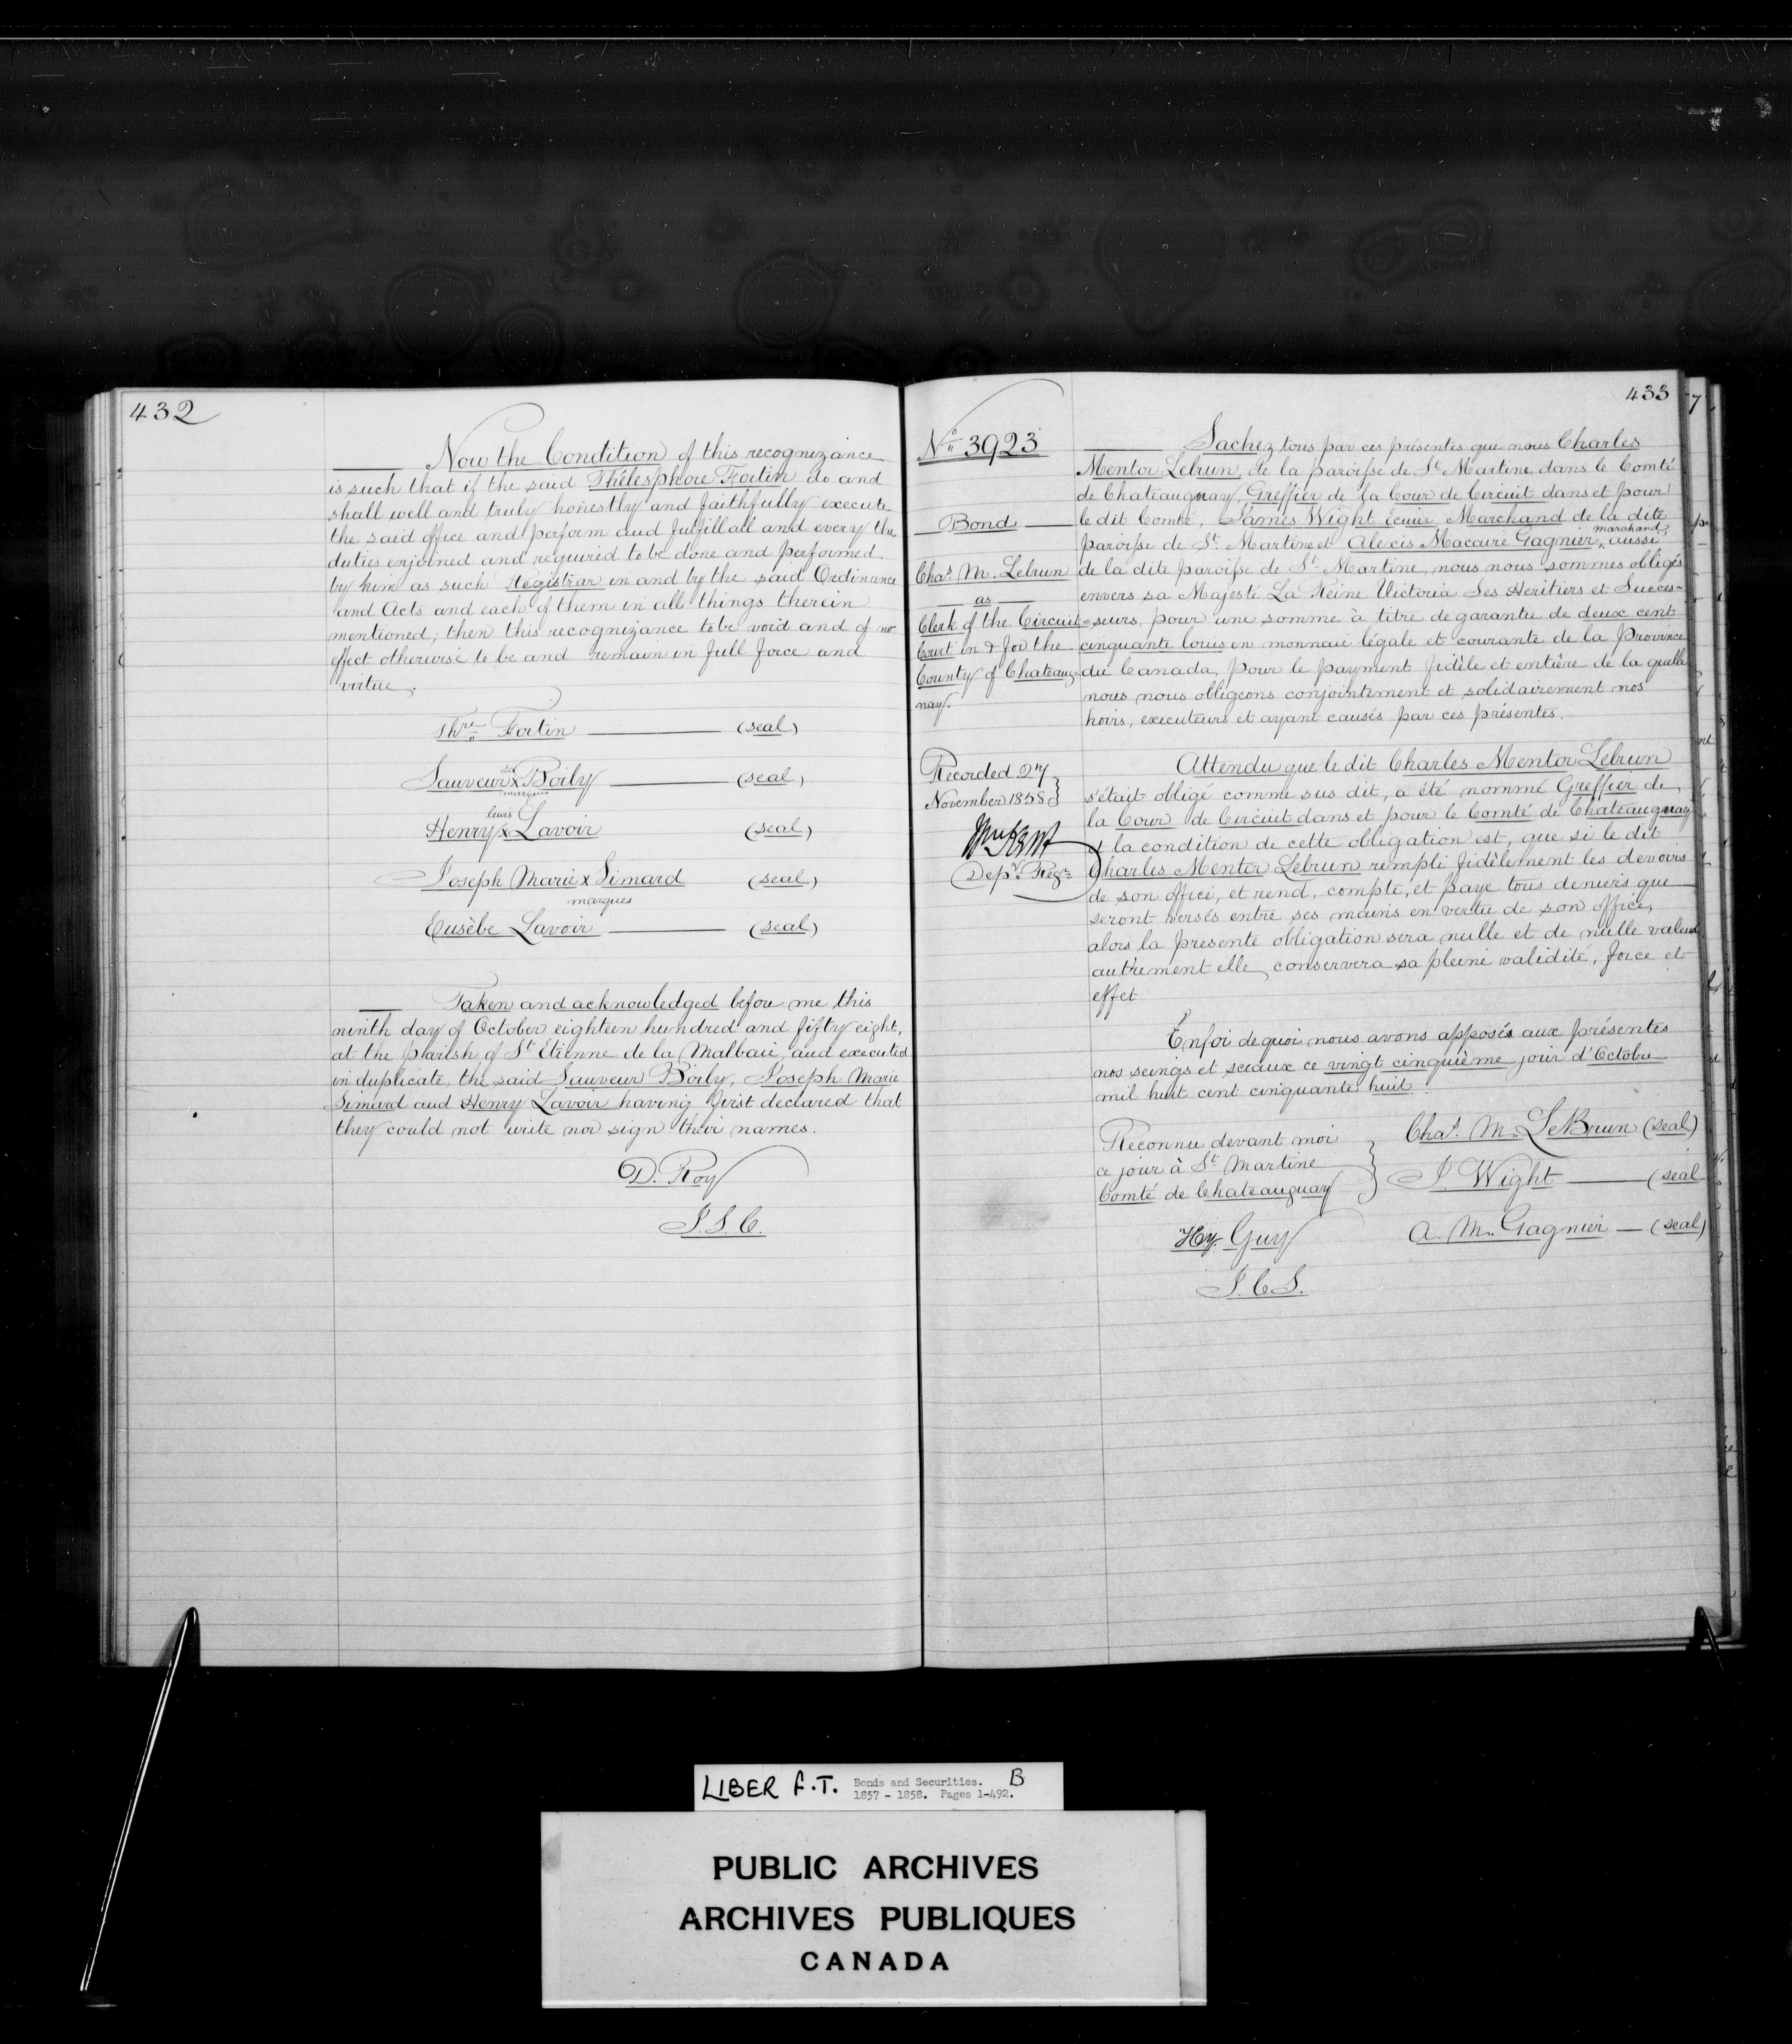 432
Now the Condition of this recognizance
is such that if the said Thélesphore Fortin do and
shall well and truly honestly and faithfully execute
the said office and perform and fulfill all and every the
duties enjoined and required to be done and performed
by him as such Registrar in and by the said Ordinance
and Acts and each of them in all things therein
mentioned; then this recognizance to be void and of no
effect otherwise to be and remain in full force and
virtue.
Thre Fortin (seal)
sa
Sauveur x Boily (seal)
marque
leurs
Henry x Lavoir (seal)
Joseph Marie x Simard (seal)
marques
Eusèbe Lavoir (seal)
Taken and acknowledged before me this
ninth day of October eighteen hundred and fifty eight,
at the parish of St Etienne de la Malbaie, and executed
in duplicate, the said Sauveur Boily, Joseph Marie
Simard and Henry Lavoir having first declared that
they could not write nor sign their names.
D. Roy
J.S.C.
433
No 3923
Bond
Chas. M. Lebrun
as
Clerk of the Circuit
Court in & for the
County of Chateaug-
nay.
Recorded 27
November 1858
Depy Regr
Sachez tous par ces présentes que nous Charles
Mentor Lebrun, de la paroisse de St Martine dans le Comté
de Chateaugnay, Greffier de la Cour de Circuit dans et pour
le dit Comté, James Wight Ecuier Marchand de la dite
marchand
paroisse de St. Martine et Alexis Macaire Gagnier, aussi
de la dite paroisse de St. Martine, nous nous sommes obligés
envers sa Majesté La Reine Victoria Ses Heritiers et Succes-
=seurs, pour une somme à titre de garantie de deux cent
cinquante louis en monnaie légale et courante de la Province
du Canada, pour le payment fidèle et entière de la quelle
nous nous obligeons conjointement et solidairement nos
hoirs, executeurs et ayant causés par ces présentes.
Attendu que le dit Charles Mentor Lebrun
s'était obligé comme sus dit, a été nommé Greffier de
la Cour de Circuit dans et pour le Comté de Chateaugnay
et la condition de cette obligation est, que si le dit
Charles Mentor Lebrun rempli fidèlement les devoirs
de son office, et rend, compte, et paye tous deniers que
seront versés entre ses mains en vertu de son office,
alors la presente obligation sera nulle et de nulle valeur
autrement elle conservera sa pleine validité, force et
effet
En foi de quoi nous avons apposés aux présentes
nos seings et sceaux ce vingt cinquième jour d'Octobre
mil huit cent cinquante huit
Reconnu devant moi
ce jour à St. Martine
Comté de Chateauguay
Hy. Guy
J.C.S.
Chas. M. LeBrun (seal)
J. Wight (seal
A. M. Gagnier (seal)
LIBER F.T. Bonds and Securities. B
1857 - 1858. Pages 1-492.
PUBLIC ARCHIVES
ARCHIVES PUBLIQUES
CANADA